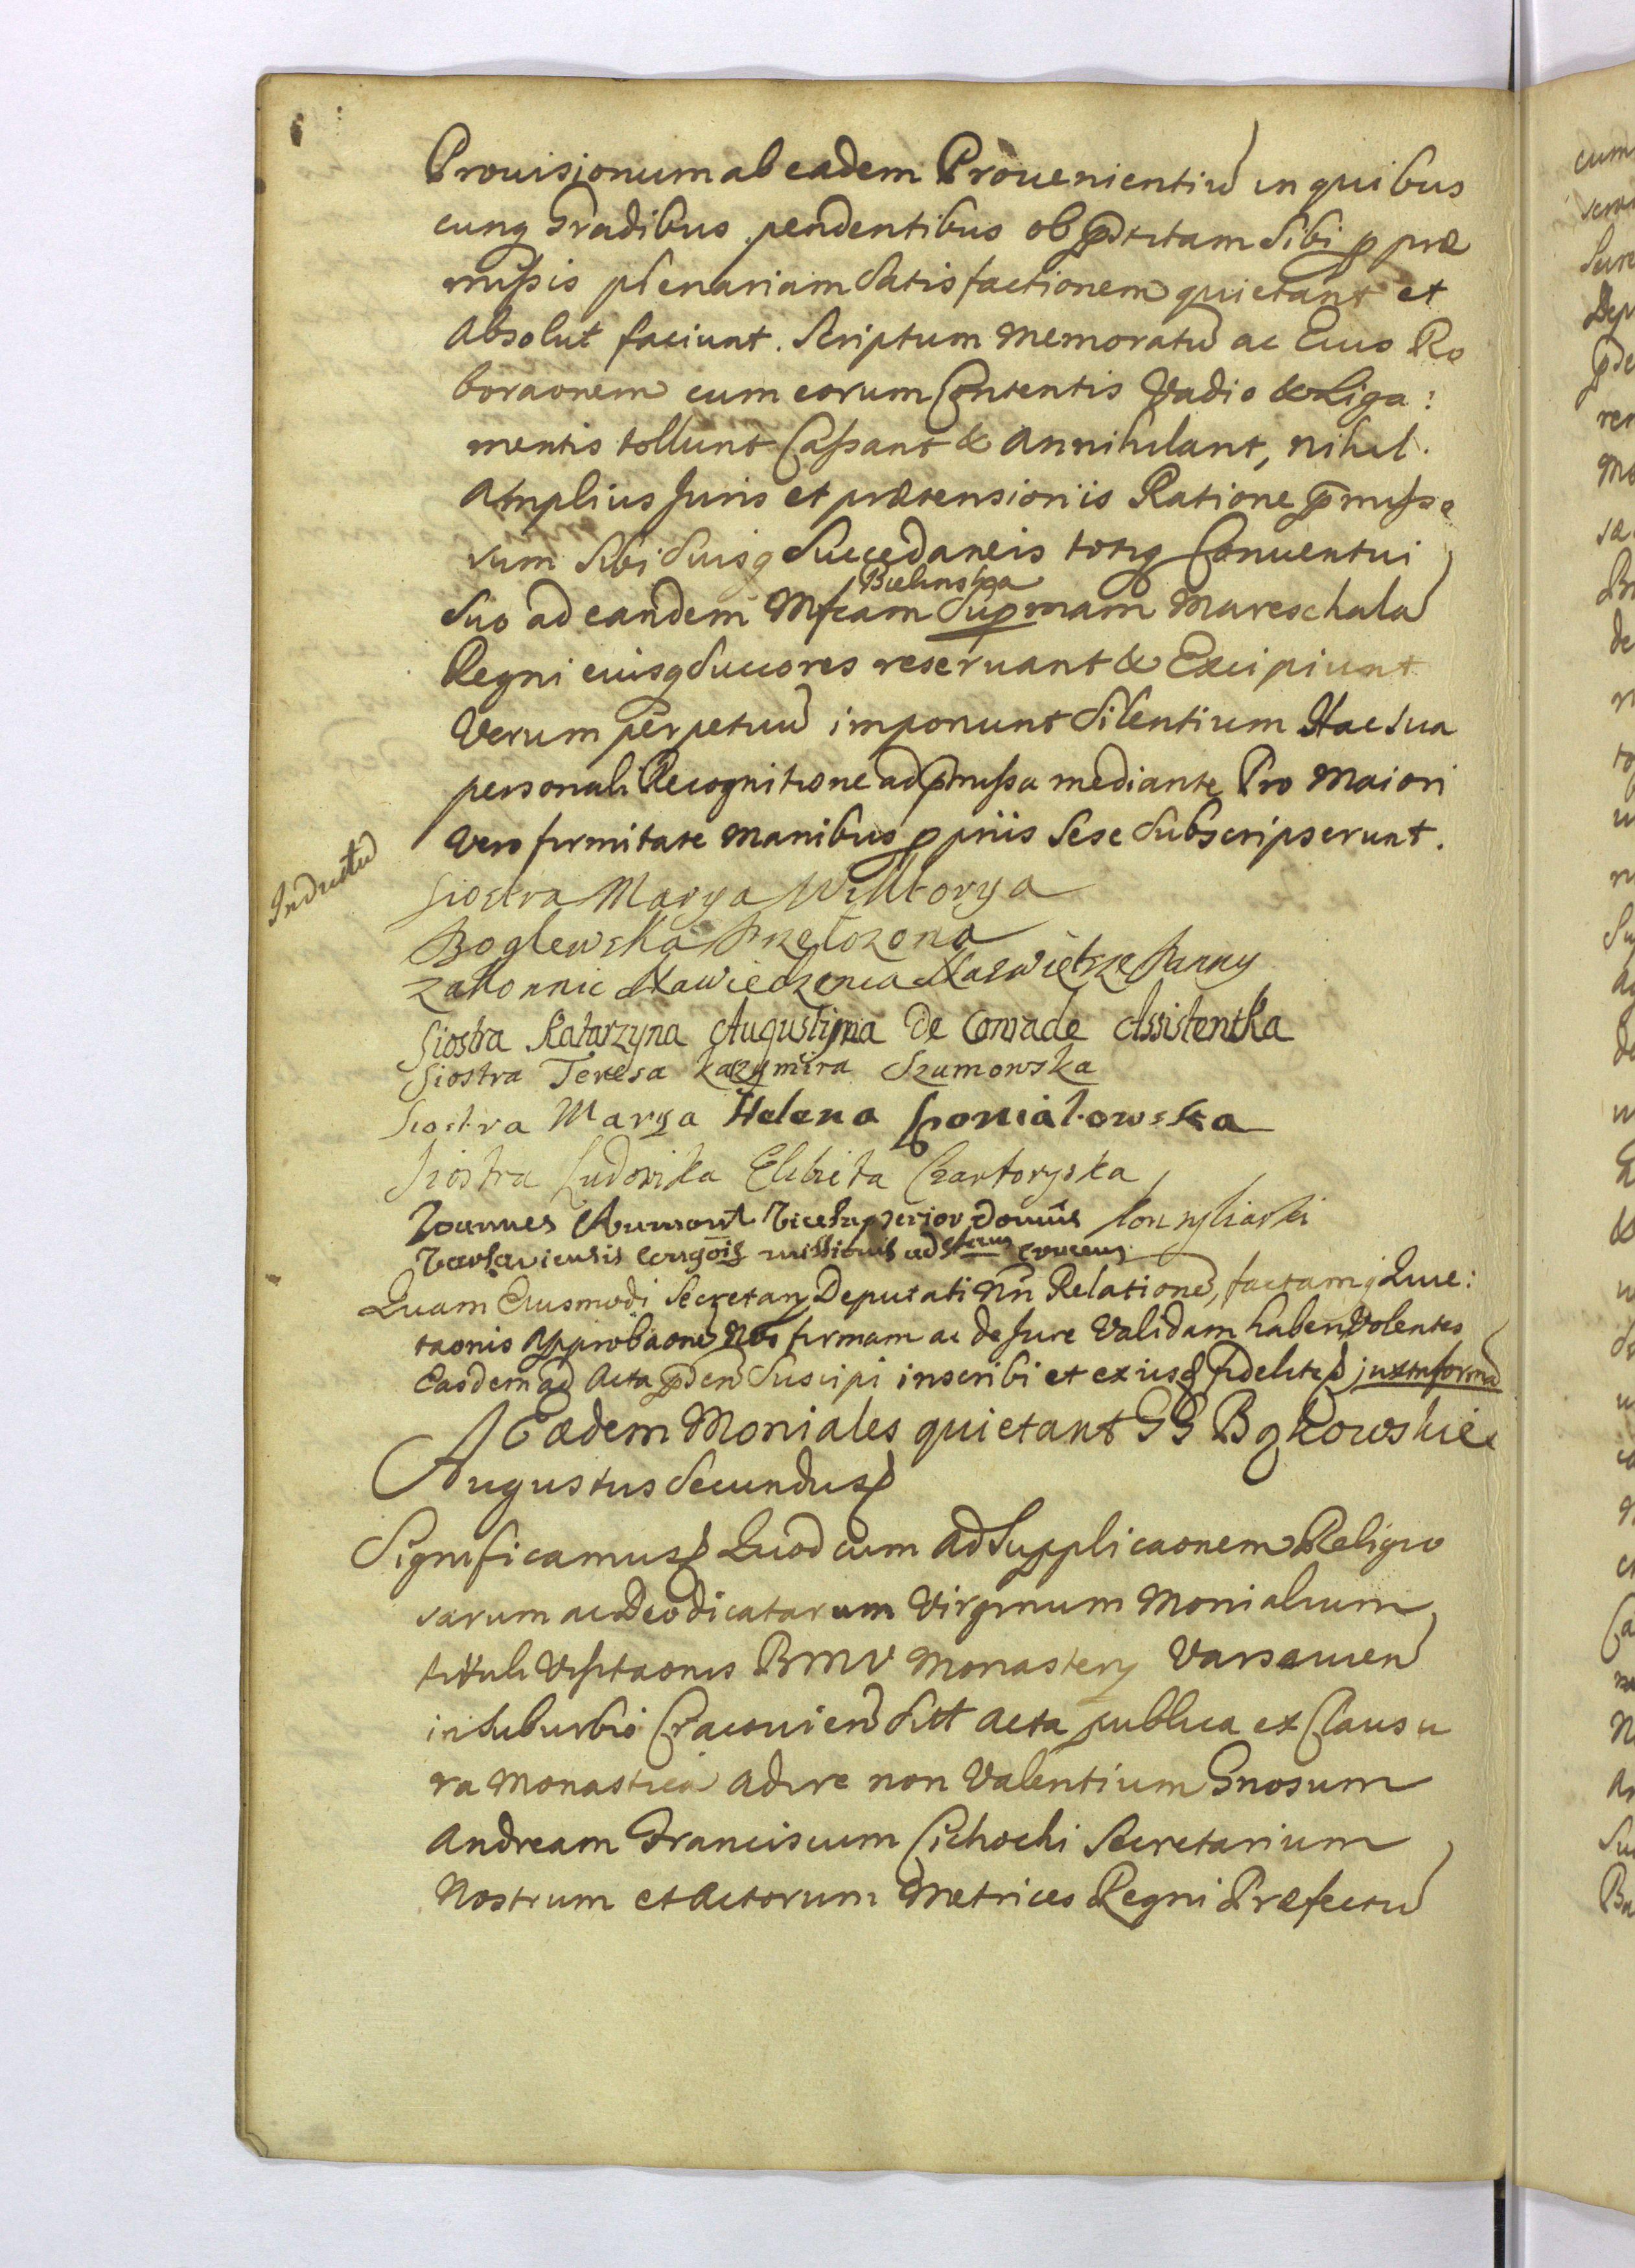 Prouisionum ab eadem Prouenientiū in quibus
cunq Gradibus pendentibus ob pstitam Sibi p præ
missis plenariam Satisfactionem quietant et
Absolut faciunt. Scriptum memoratū ac Eius Ro
boraonem cum eorum Contentis Vadio & Liga:
mentis tollunt Cassant & Annihilant, nihil
Amplius Juris et prætensionis Ratione pmisso
rum Sibi Suisq Succedaneis totiq Conuentui
Bielinska
Suo ad eandem Mfcam Supmam Mareschalā
Regni eiusq Succores reseruant & Excipiunt
Verum perpetuū imponunt Silentium Hac Sua
personali Recognitione ad pmissa mediante Pro Maiori
Vero firmitate Manibus ppriis Sese Subscripserunt.
Inductū
Siostra Marya Wiktorya
Boglewska Przełozona
zakonnic Nawiedzenia Naswiętsze Panny
Siostra Katarzyna Augustyna De Comade Assistentka
Siostra Teresa Kazymira Szumowska
Siostra Marya Helena Poniatowska
Siostra Ludowika Elzbieta Czartoryska
Konsyliarki
Joannes Aumont Vicesuperior Domus
Varsaviensis Congōis missionis ad Stam crucem
Quam Eiusmodi Secretary Deputati Nri Relationē, factamq Quie:
taonis Approbaonē Nos firmam ac de Jure Validam haberi Volentes
Easdem ad Acta pden Suscipi inscribi et ex iisd fidelite juxta formā
Eædem Moniales quietant GG Bąkowskie
Augustus Secundus
Significamus Quod cum ad Supplicaonem Religio
sarum ac Deo dicatarum Virginum Monialium
tituli Visitaonis BMV Monastery Varsauien
in Suburbio Cracouien Sitt acta publica ex Clausu
ra Monastica adire non Valentium Gnosum
Andream Franciscum Cichocki Secretarium
Nostrum et Actorum Metrices Regni Præfectū